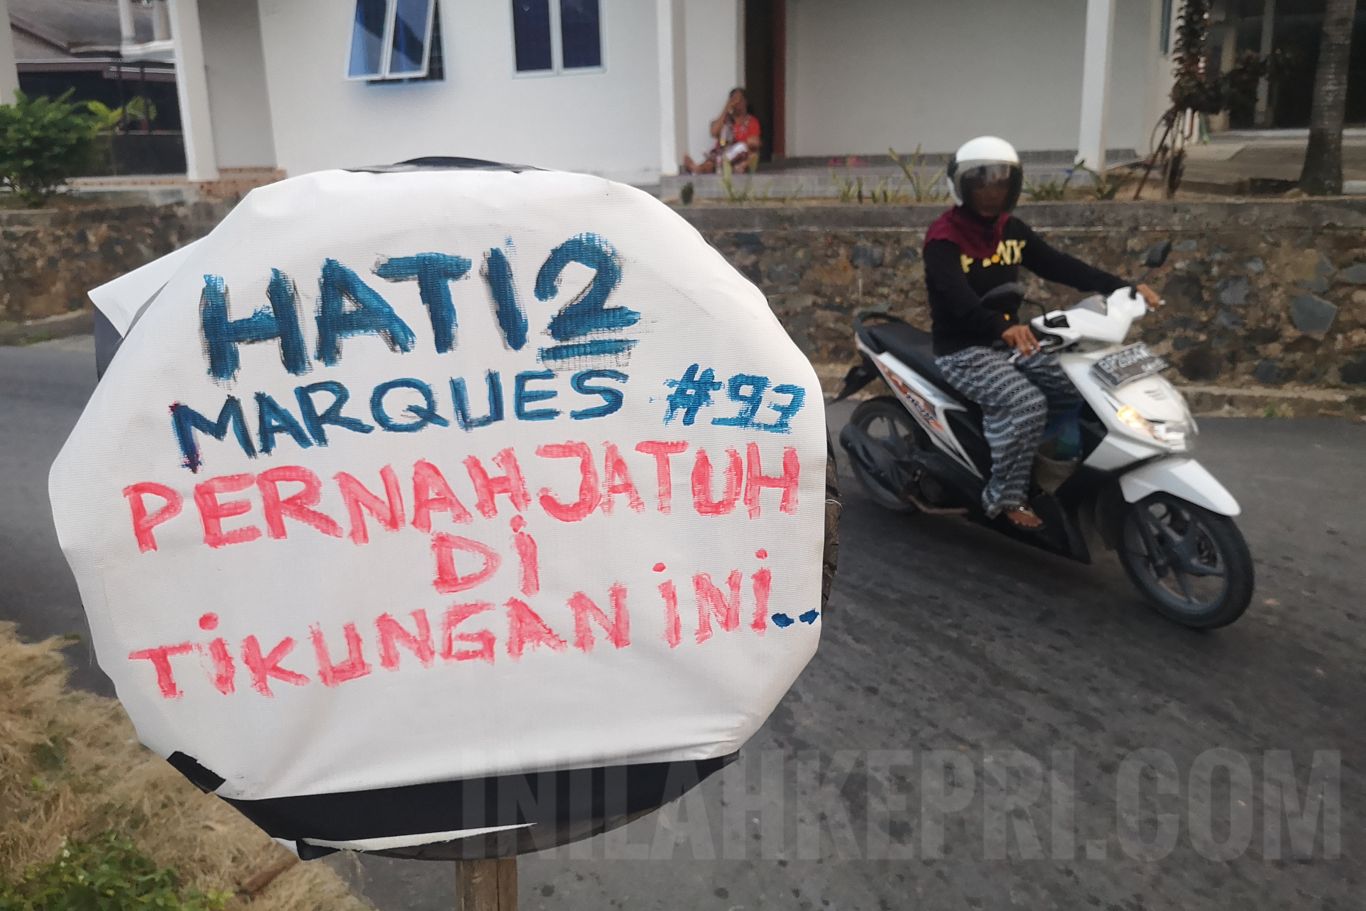 HATI2
MARQUES #93
PERNAH JATUH
DI
TIKUNGAN INI..
INILAHKEPRI.COM